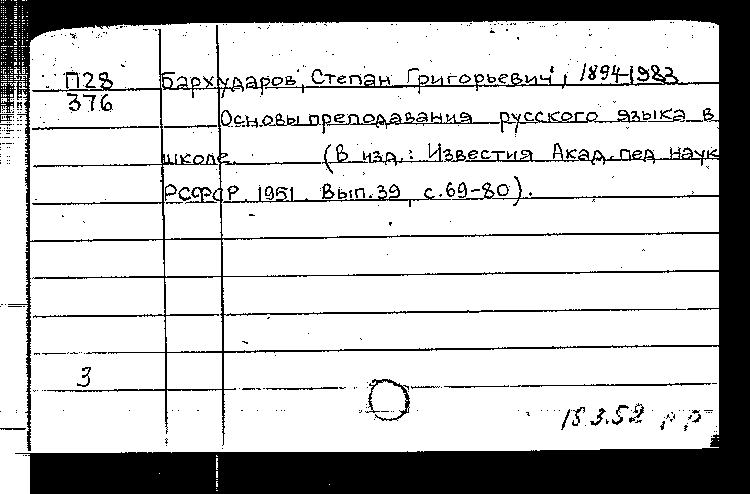 П28 Бархударов, Степан Григорьевич, 1894-1983
376
Основы преподавания русского языка в
школе. (В изд.: Известия Акад. пед наук
РСФСР. 1951. Вып. 39, с. 69-80).
3
18.3.52 р р